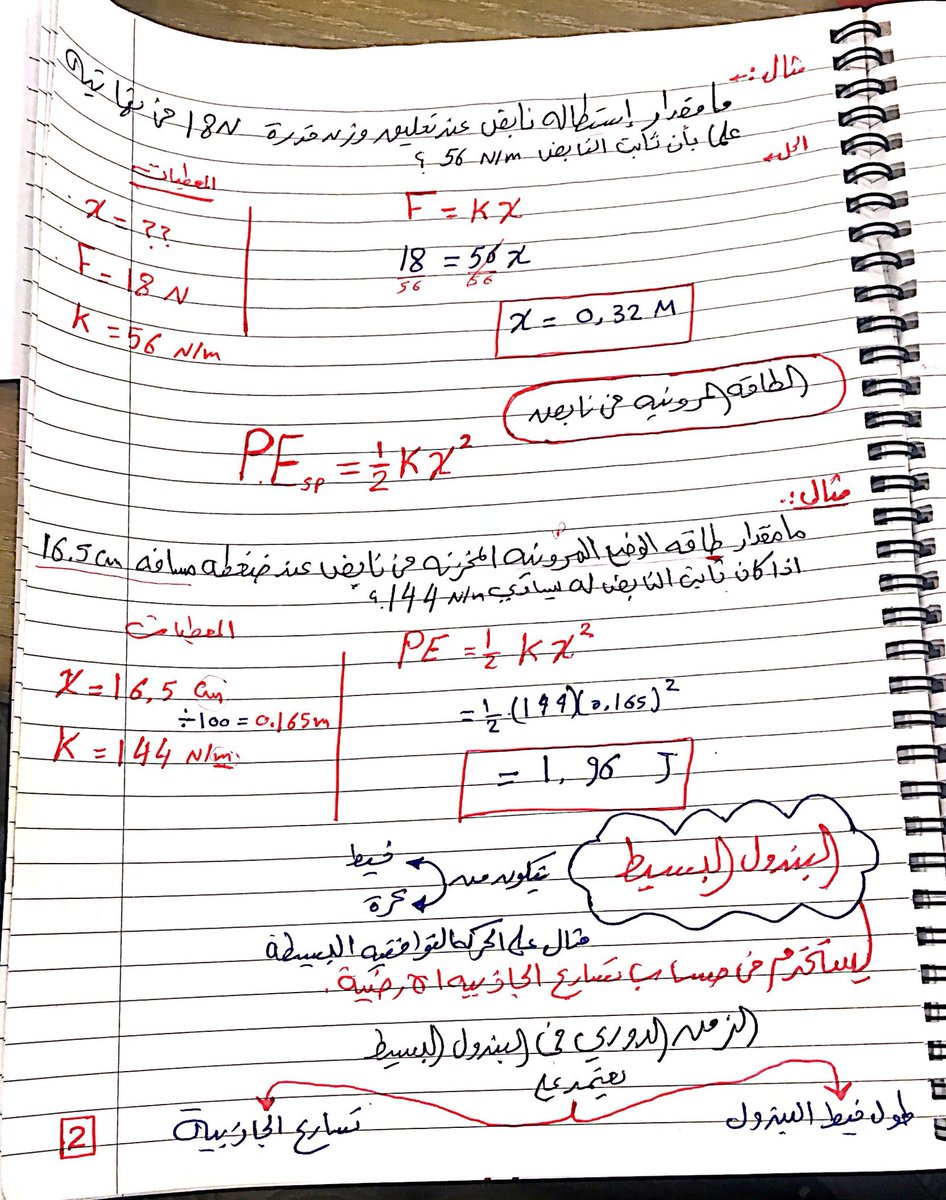 مثال :-
ما مقدار إستطاله نابض عند تعليق وزنه قدرة 18N في نهايته
علما بأن ثابت النابض 56 N/m ؟
الحل
المعطيات
x = ??
F = 18 N
K = 56 N/m
F = K x
18 = 56 x
56 56
x = 0,32 M
الطاقه المرونيه في نابض
P.E sp = 1/2 K x²
مثال :.
ما مقدار طاقه الوضع المرونيه المخزنه في نابض عند ضغطه مسافه 16.5 cm
اذا كان ثابت النابض له يساوي 144 N/m ؟
المعطيات
x = 16,5 cm
÷100 = 0.165 m
K = 144 N/m.
PE = 1/2 K x²
= 1/2 (144)(0.165)²
= 1,96 J
البندول البسيط
يتكون من
خيط
كرة
مثال على الحركه التوافقيه البسيطة
يستخدم في حساب تسارع الجاذبيه الارضية .
الزمن الدوري في البندول البسيط
يعتمد على
طول خيط البندول
تسارع الجاذبية
2